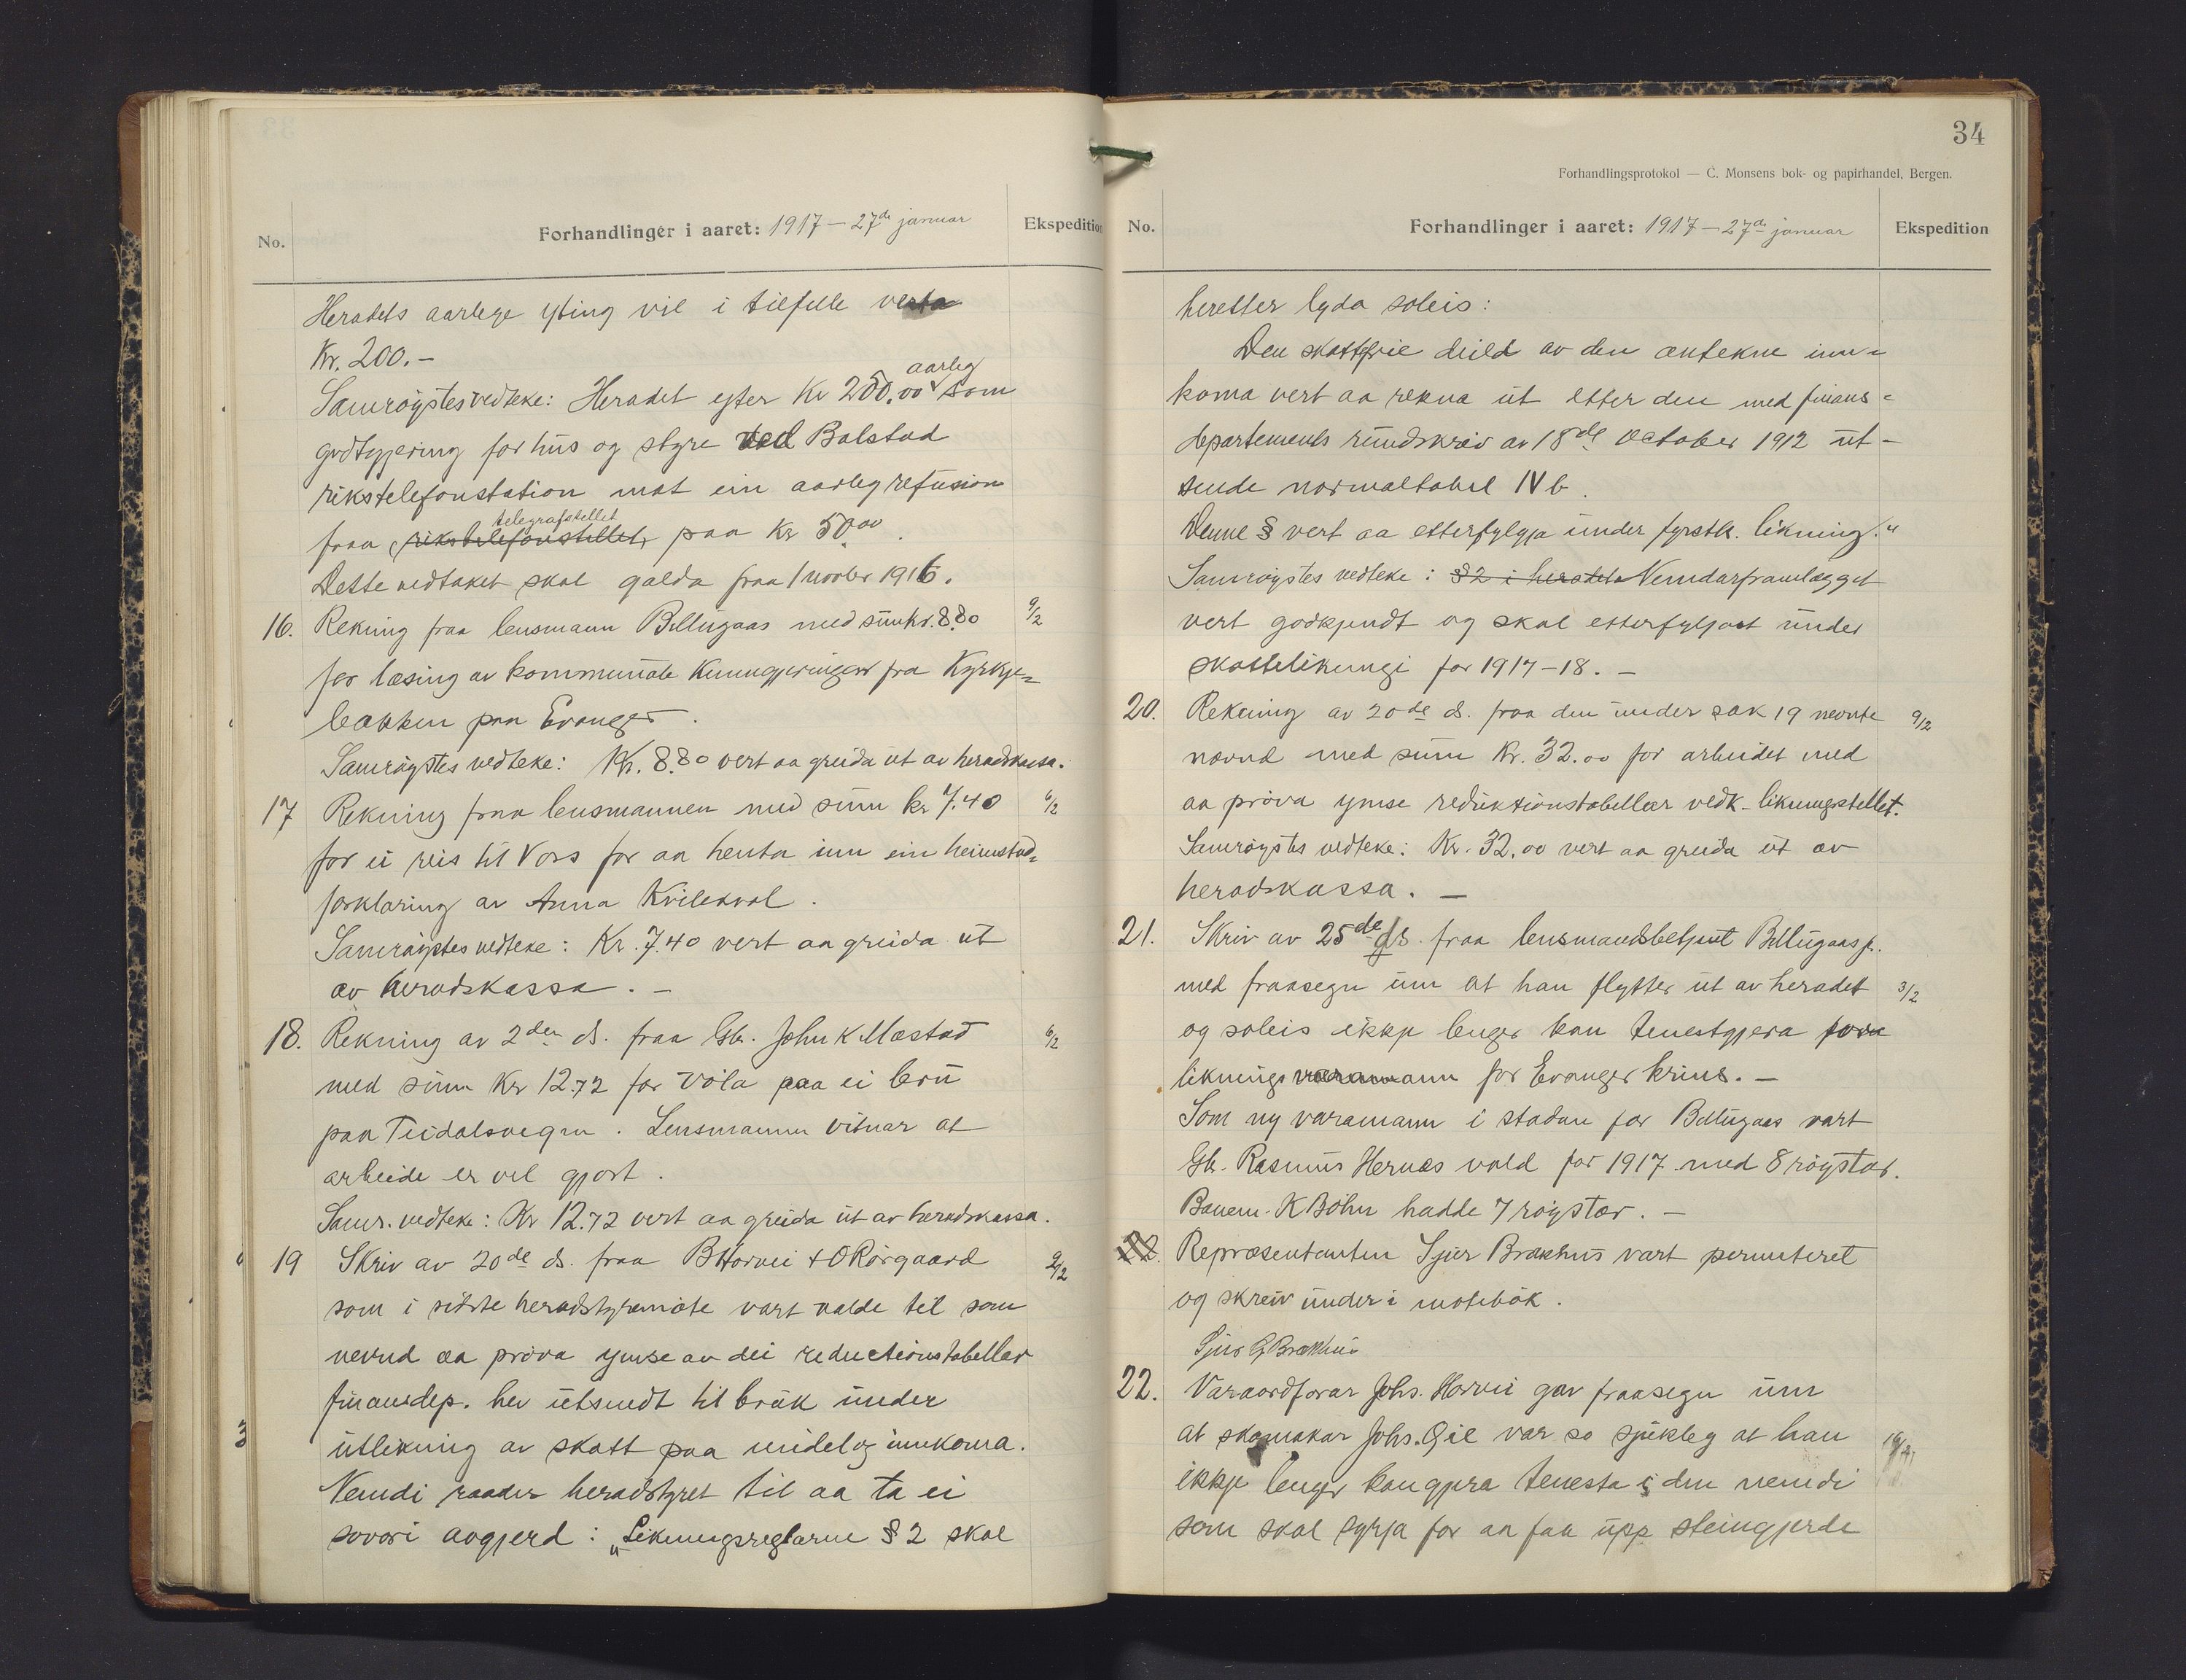 No.
Forhandlinger i aaret: 1917 — 27de januar
Ekspedition
Heradets aarlege yting vil i tilfelle verta
Kr. 200.-
aarleg
Samrøystes vedteke: Heradet yter Kr 250.00 som
godtgjering for hus og styre ved Bolstad
rikstelefonstation mot ein aarleg refusion
telegrafstellet
fraa rikstelefonstellet, paa Kr 50.00.
Dette vedtaket skal galda fraa 1 novbr 1916.
16. Rekning fraa lensmann Bellugaas med sum kr. 8.80 9/2
for læsing av kommunale kunngjeringar fra Kyrkje-
bakken paa Evanger.
Samrøystes vedteke: Kr. 8.80 vert aa greida ut av heradskassa.
17 Rekning fraa lensmannen med sum kr 7.40 6/2
for ei reis til Voss for aa henta inn ein heimstad-
forklaring av Anna Kvilekval.
Samrøystes vedteke: Kr. 7.40 vert aa greida ut
av heradskassa. —
18. Rekning av 2den ds. fraa Gbr. John K Mæstad 6/2
med sum Kr 12.72 for vøla paa ei bru
paa Teidalsvegen. Lensmannen vitnar at
arbeide er vel gjort.
Samr. vedteke: Kr 12.72 vert aa greida ut av heradskassa.
19 Skriv av 20de ds. fraa B Horvei + O Rørgaard 9/2
som i sidste heradstyremøte vart valde til som
nevnd aa prøva ymse av dei reductionstabellar
finansdep. hev utsendt til bruk under
utlikning av skatt paa midel og innkoma.
Nemdi raader heradstyret til aa ta ei
sovori avgjerd: „Likningsreglarne § 2 skal
34
Forhandlingsprotokol — C. Monsens bok- og papirhandel, Bergen.
No.
Forhandlinger i aaret: 1917 — 27de januar
Ekspedition
heretter lyda soleis:
Den skattfrie deild av den antekne inn-
koma vert aa rekna ut etter den med finans-
departements rundskriv av 18de October 1912 ut-
sende normaltabel IV b.
Denne § vert aa etterfylgja under fyrstk. likning."
Samrøystes vedteke: § 2 i heradets Nemdarframlegget
vert godkjendt og skal etterfyljast under
skattelikningi for 1917-18. —
20. Rekning av 20de ds. fraa den under sak 19 nevnte 9/2
nevnd med sum Kr. 32.00 for arbeidet med
aa prøva ymse reduktionstabellar vedk. likningstellet.
Samrøystes vedteke: Kr. 32.00 vert aa greida ut av
heradskassa. —
21. Skriv av 25de ds. fraa lensmandsbetjent Bellugaas jr.
med fraasegn um at han flytter ut av heradet 3/2
og soleis ikkje lenger kan tenestgjera som
likningsvaramann for Evanger krins. —
Som ny varamann i stadan for Bellugaas vart
Gbr. Rasmus Hernæs vald for 1917 med 8 røystar.
Banem. K Bøhn hadde 7 røystar. —
22. Repræsentanten Sjur Brækhus vart permiteret
og skreiv under i møtebok.
Sjur G Brækhus
22. Varaordførar Johs. Horvei gav fraasegn um
at skomakar Johs. Gil var so sjukleg at han
ikkje lenger kan gjera tenesta i den nemdi
som skal syrja for aa faa upp steingjerde